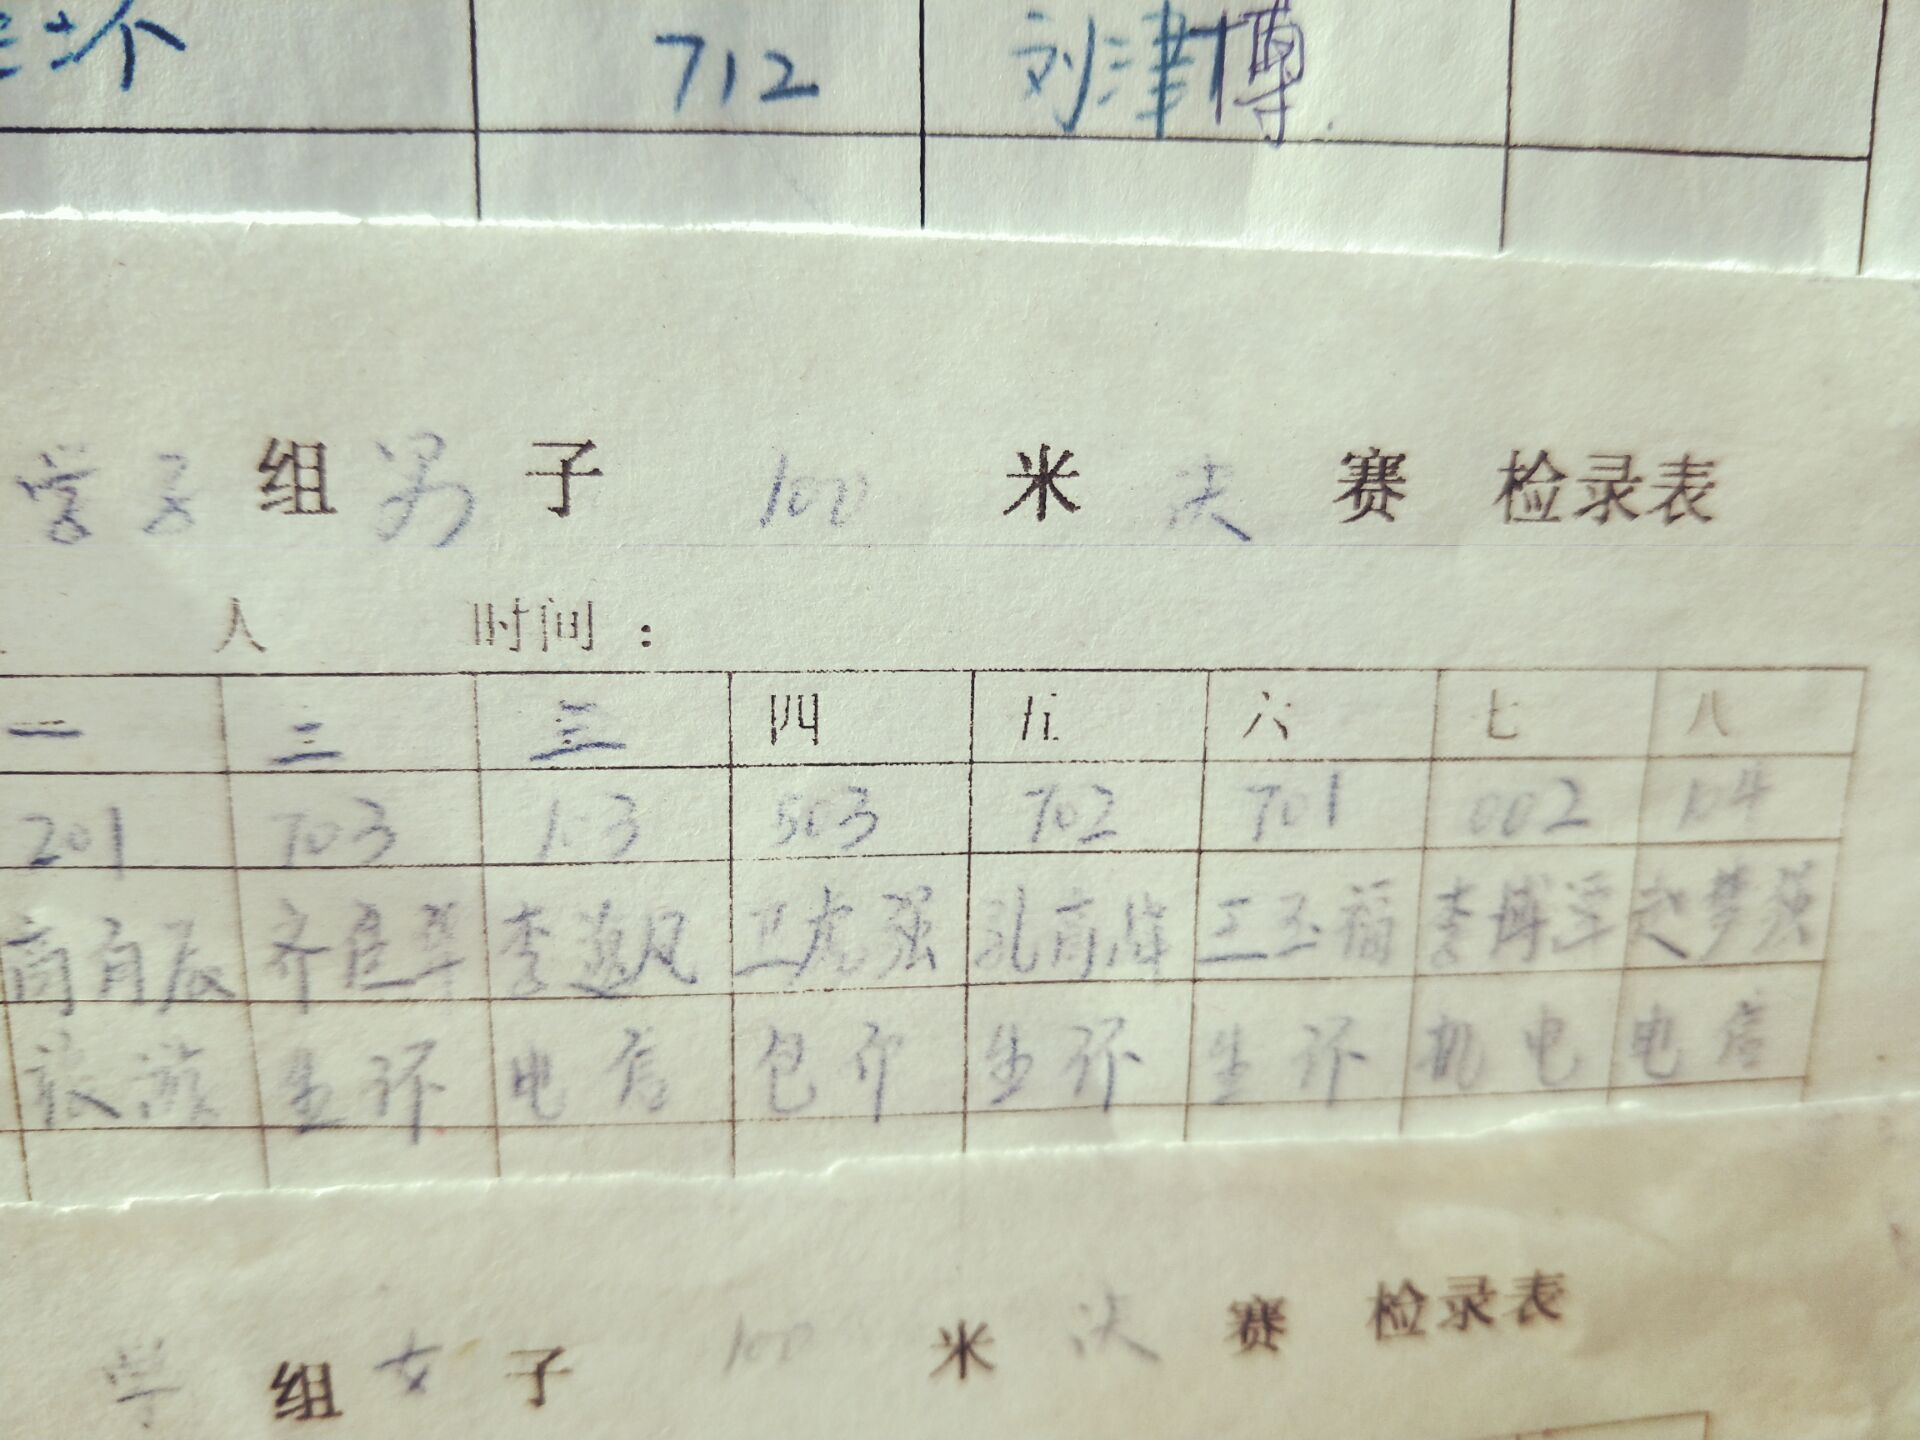 712 刘津博
学子组男子 100 米 决 赛 检录表
人 时间：
一 二 三 四 五 六 七 八
201 703 103 503 702 701 002 104
商 齐 李 强 孔 王玉福 李博 赵梦强
旅游 生环 电信 包 生环 生环 机电 电信
学 组 女 子 100 米 决 赛 检录表